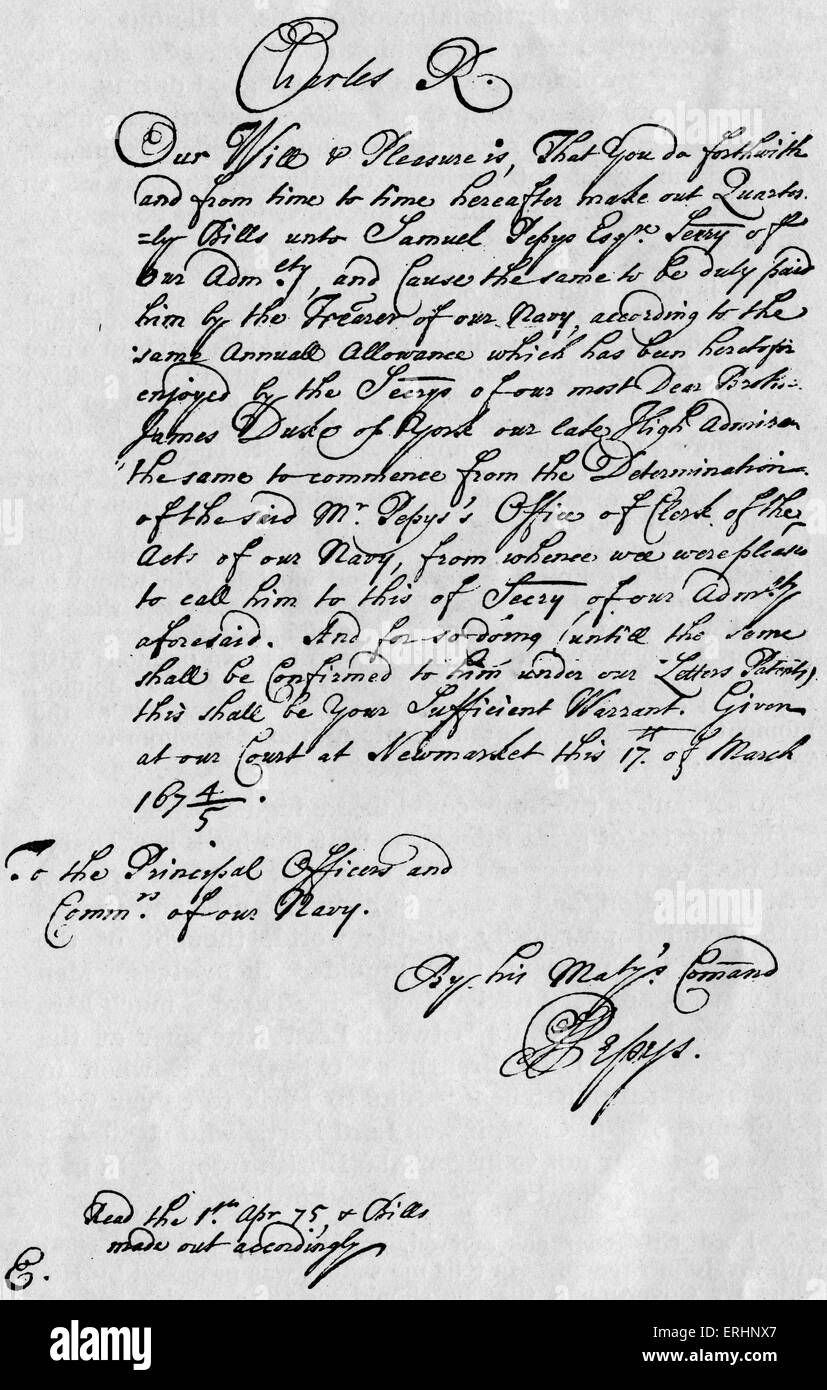 Charles R.
Our Will & Pleasure is, That You do forthwith
and from time to time hereafter make out Quarter
=ly Bills unto Samuel Pepys Esqre. Secry of
our Adm.lty, and Cause the same to be duly paid
him by the Trẽarer of our Navy, according to the
same Annuall Allowance which has been heretofor
enjoyed by the Secrys of our most Dear Broth
James Duke of York our late High Admira
the same to commence from the Determination
of the said Mr. Pepys's Office of Clerk of the
Acts of our Navy, from whence wee were pleas
to call him to this of Secry of our Adm.lty
aforesaid. And for so doing (untill the same
shall be Confirmed to him under our Letters Patents)
this shall be Your Sufficient Warrant. Given
at our Court at Newmarket this 17th of March
1674/5.
To the Principal Officers and
Commrs. of our Navy.
By his Maty's. Comand
S Pepys.
Read the 1.st Apr 75, & Bills
made out accordingly
E.
alamy
alamy stock photo
ERHNX7
www.alamy.com